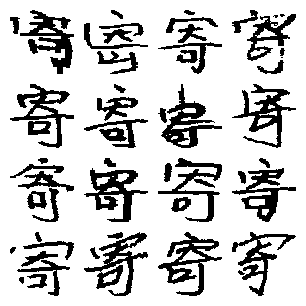 寄寄寄寄
寄寄寄寄
寄寄寄寄
寄寄寄寄